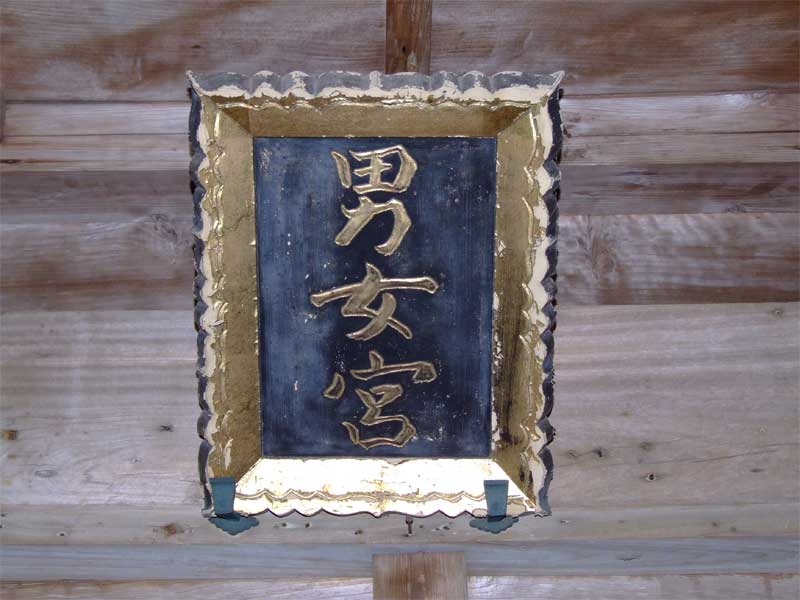 男女宮